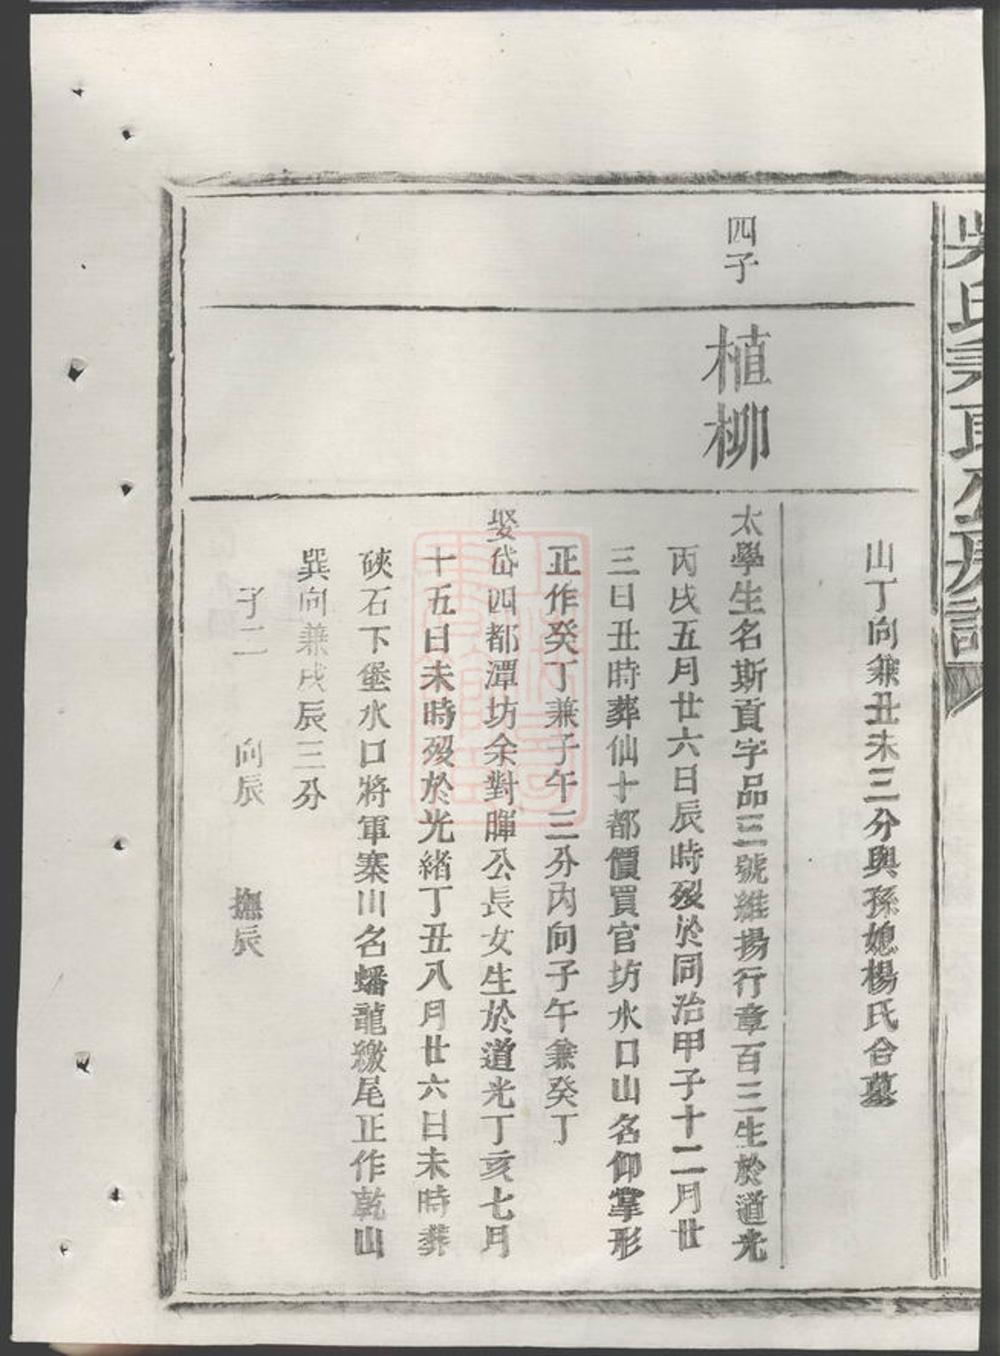 吳氏美取公房譜
山丁向兼丑未三分與孫媳楊氏合墓
四子
植柳
太學生名斯貢字品三號維揚行章百三生於道光
丙戌五月廿六日辰時歿於同治甲子十二月廿
三日丑時葬仙十都價買官坊水口山名仰掌形
正作癸丁兼子午三分內向子午兼癸丁
娶岱四都潭坊余對暉公長女生於道光丁亥七月
十五日未時歿於光緒丁丑八月廿六日未時葬
硤石下堡水口將軍寨山名蟠龍繳尾正作乾山
巽向兼戌辰三分
子二 向辰 撫辰